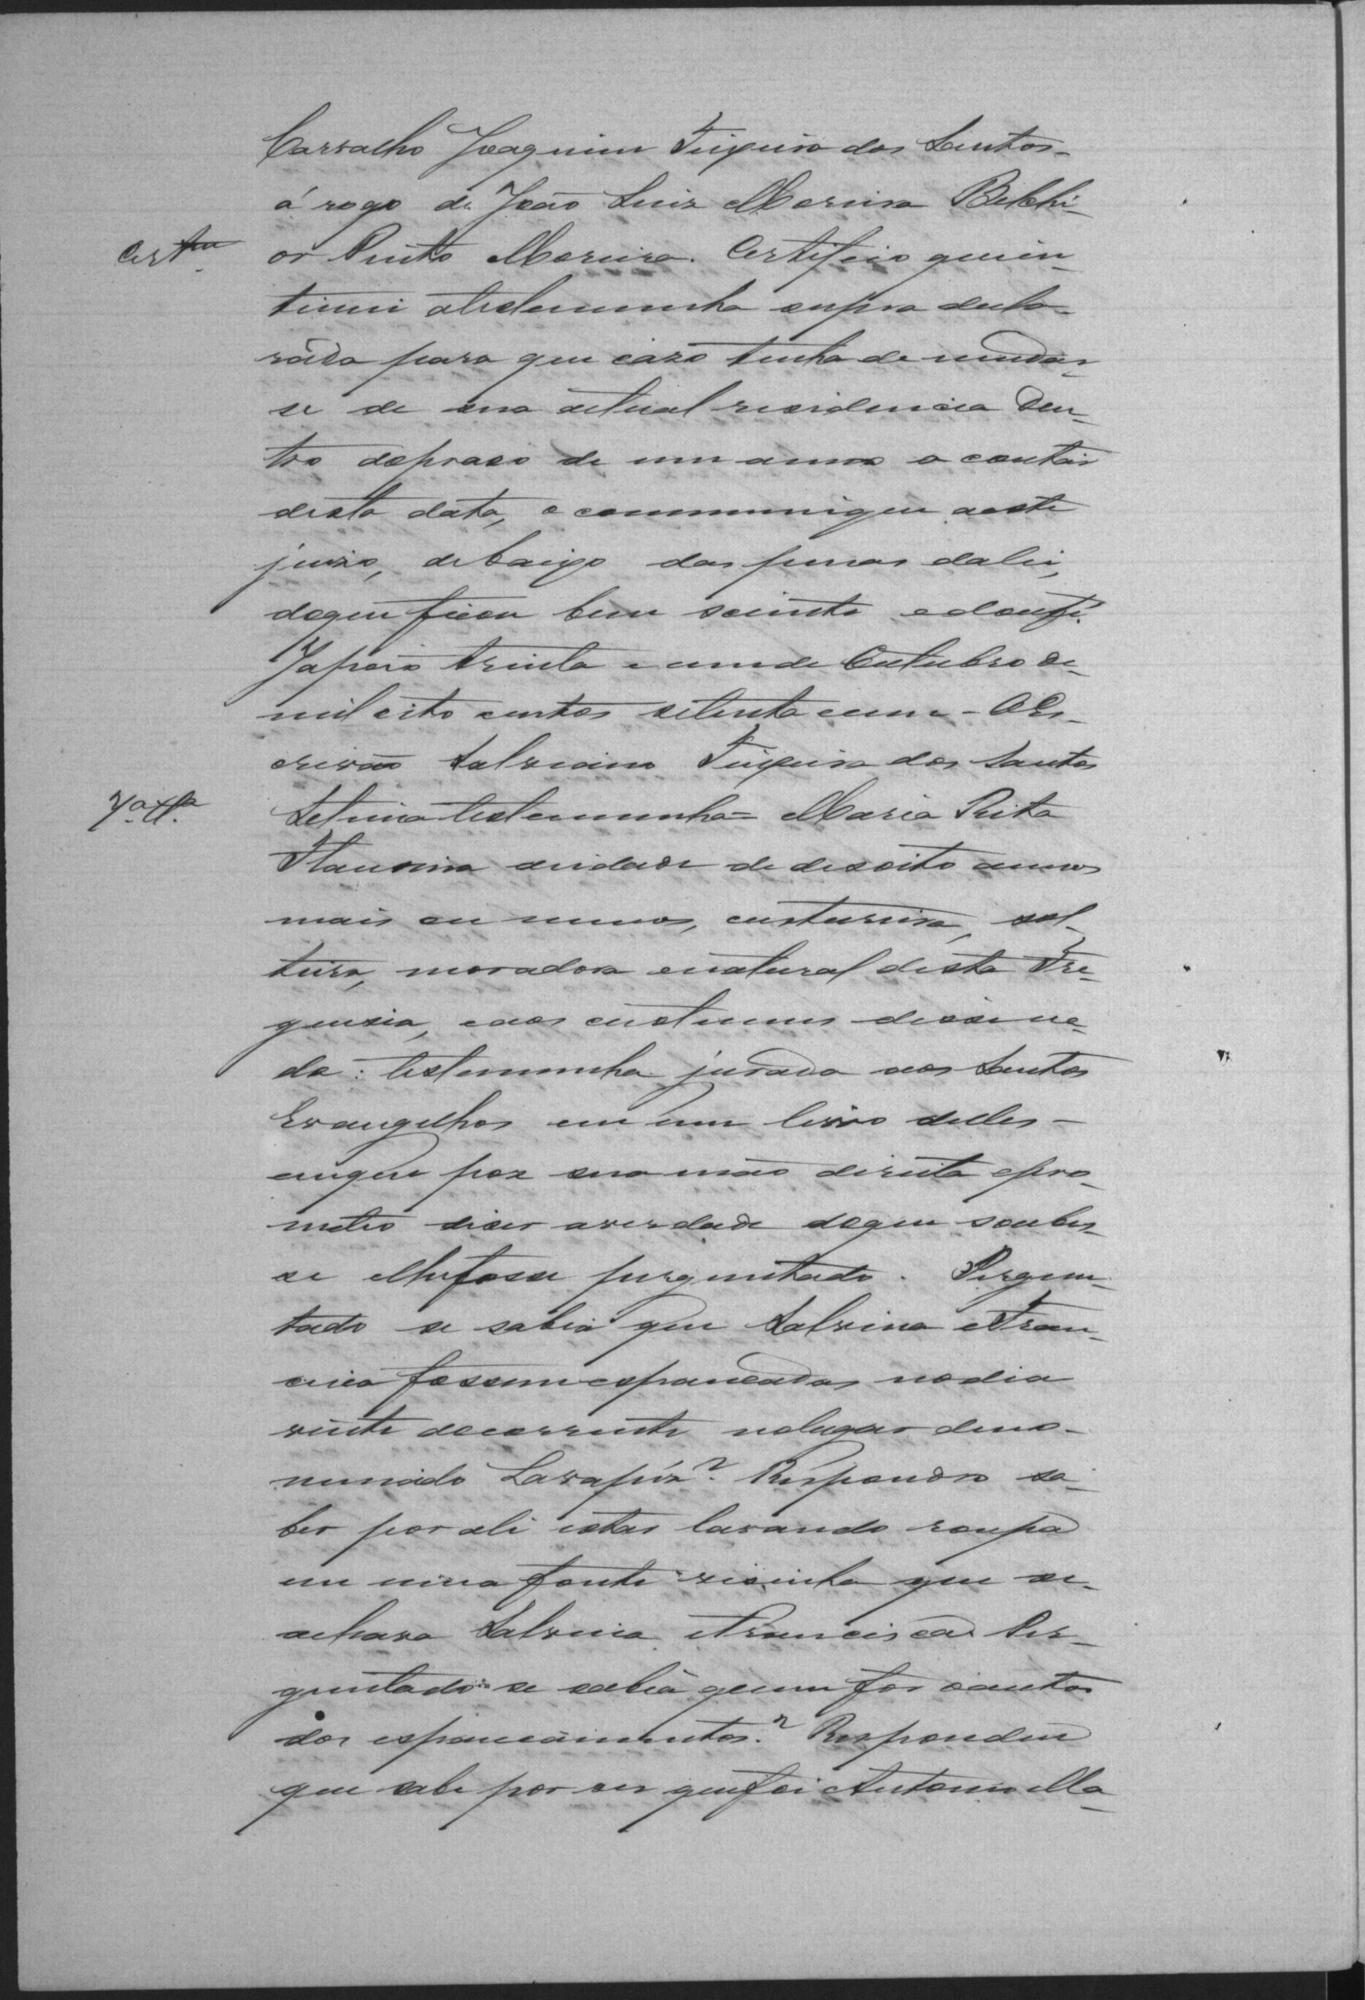 Carvalho Joaquim Teixeira dos Santos-
á rogo de João Luiz Moreira Belchi-
Certam
or Pinto Moreira. Certifico que in-
timei atestemunha supra decla-
rada para que cazo tenha de mudar-
se de sua actual residencia den-
tro do praso de um anno a contar
desta data, o communique aeste
juizo, debaixo das penas dalei,
doque ficou bem sciente e doufé.
Japão trinta e um de Outubro de
mil oito centos setenta e um - O Es-
crivão Salviano Teixeira dos Santos
7ª Ttª
Setima testemunha = Maria Rita
de idade de desoito annos
mais ou menos, custureira, sol-
teira, moradora e natural desta Fre-
guesia, e aos custumes disse na-
da: testemunha jurada aos Santos
Evangelhos em um livro delles -
em que poz sua mão direita e pro-
meteo dizer averdade doque soubes-
se e lhe fosse perguntado. Pergun-
tado se sabia que Salvina e Fran-
cisca fossem espancadas no dia
vinte do corrente no lugar deno-
minado Lavapés? Respondeo sa-
ber por ali estar lavando roupa
em uma fonte vizinha que se
achava Salvina e Francisca. Per-
guntado se sabia quem foi o autor
dos espancamentos? Respondeu
que sabe por ver que foi Antonio Ma-